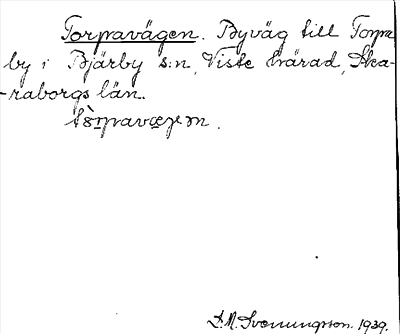 Torpavägen. Byväg till Torpa
by i Bjärby s:n, Viste härad, Ska-
-raborgs län.
D.M. Svenungsson. 1939.